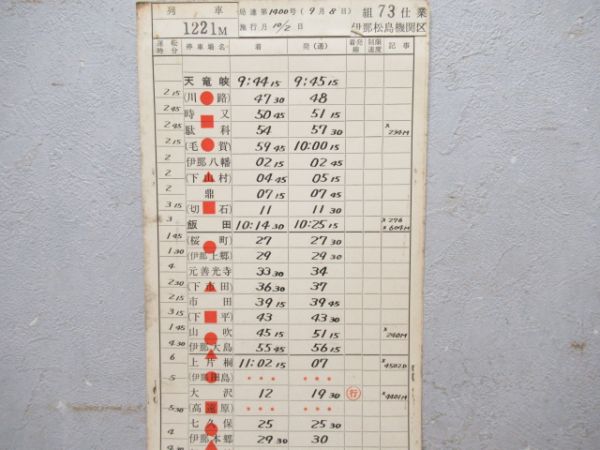 列車 局達第1400号(9月8日) 組73仕業
1221M 施行月10/2日 伊那松島機関区
運転時分 停車場名 着 発(通) 着発線 制限速度 記事
天竜峡 9:44 15 9:45 15
2 15 (川路) 47 30 48
2 45 時又 50 45 51 15
2 45 駄科 54 57 30 × 234M
2 (毛賀) 59 45 10:00 15
2 伊那八幡 02 15 02 45
2 (下山村) 04 45 05 15
2 鼎 07 15 07 45
3 15 (切石) 11 11 30
3 飯田 10:14 30 10:25 15 × 276 × 604M
1 45 (桜町) 27 27 30
1 30 (伊那上郷) 29 29 30
4 元善光寺 33 30 34
2 30 (下市田) 36 30 37
2 15 市田 39 15 39 45
3 15 (下平) 43 43 30
1 45 山吹 45 15 51 15 × 240M
4 30 伊那大島 55 45 56 15
6 上片桐 11:02 15 07 × 4502D
5 (伊那田島) ・・・ ・・・
大沢 12 19 30 行 × 4401M
5 30 (高遠原) ・・・ ・・・
七久保 25 25 30
4 伊那本郷 29 30 30